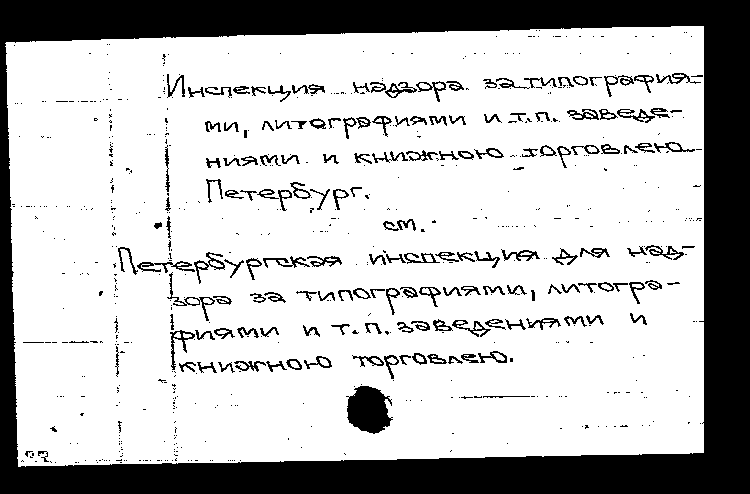 Инспекция надзора за типография-
ми, литографиями и т.п. заведе-
ниями и книжною торговлею.
Петербург.
см.
Петербургская инспекция для над-
зора за типографиями, литогра-
фиями и т.п. заведениями и
книжною торговлею.